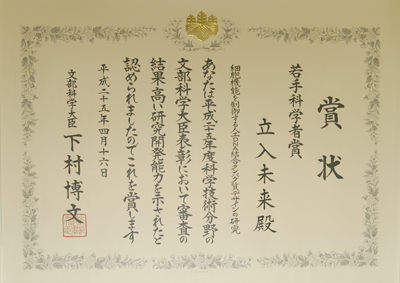 賞状
若手科学者賞
立入未来殿
細胞機能を制御する人工RNA結合タンパク質デザインの研究
あなたは平成二十五年度科学技術分野の
文部科学大臣表彰において審査の
結果高い研究開発能力を示されたと
認められましたのでこれを賞します
平成二十五年四月十六日
文部科学大臣 下村博文